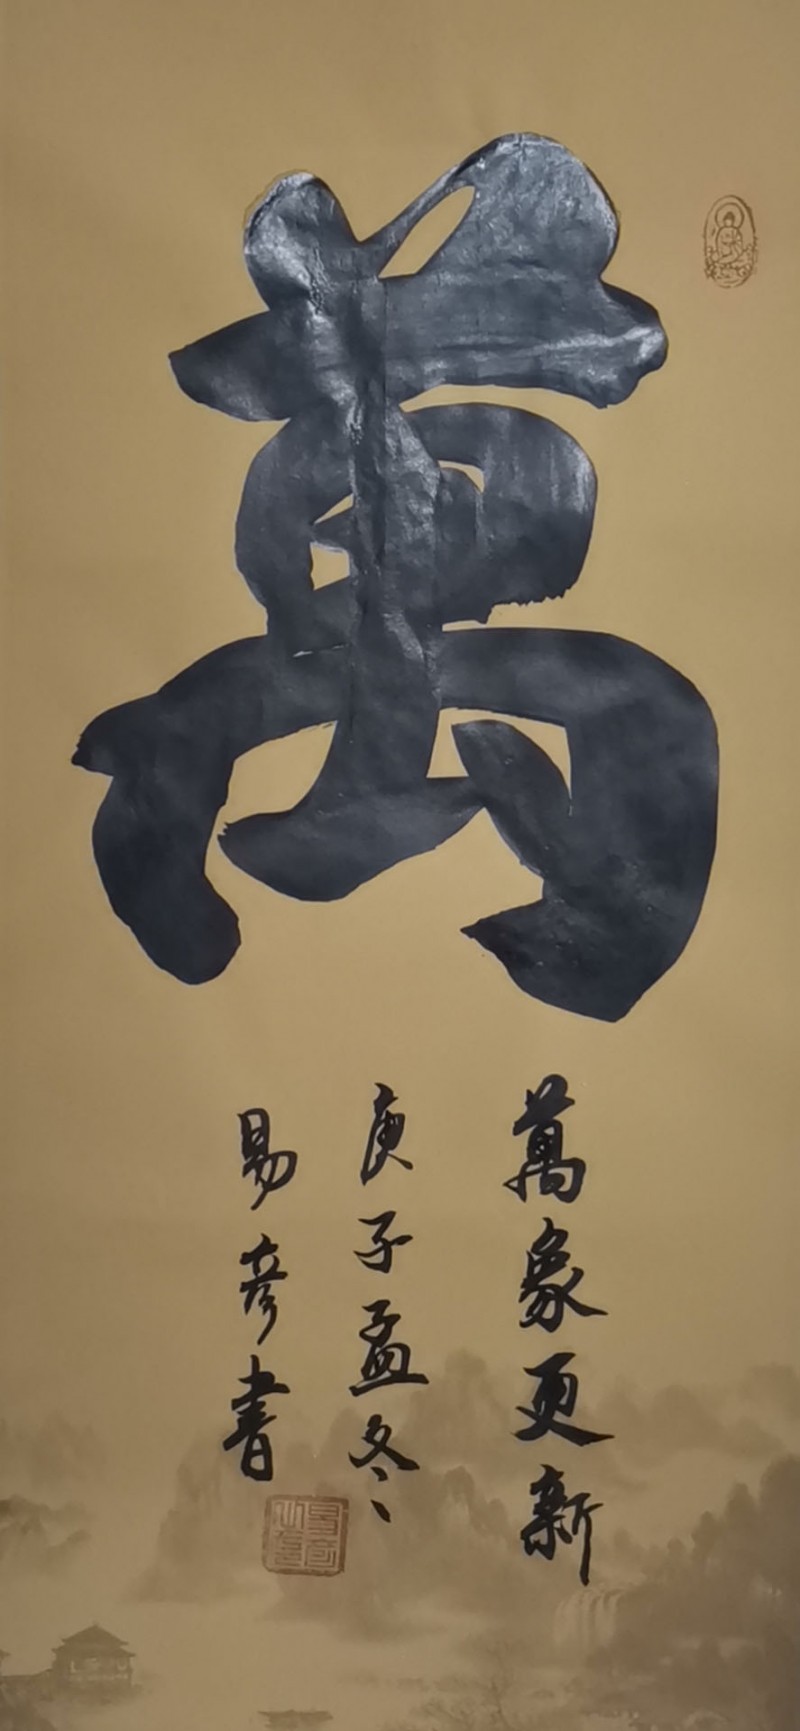 萬
萬象更新
庚子孟冬
易彦書